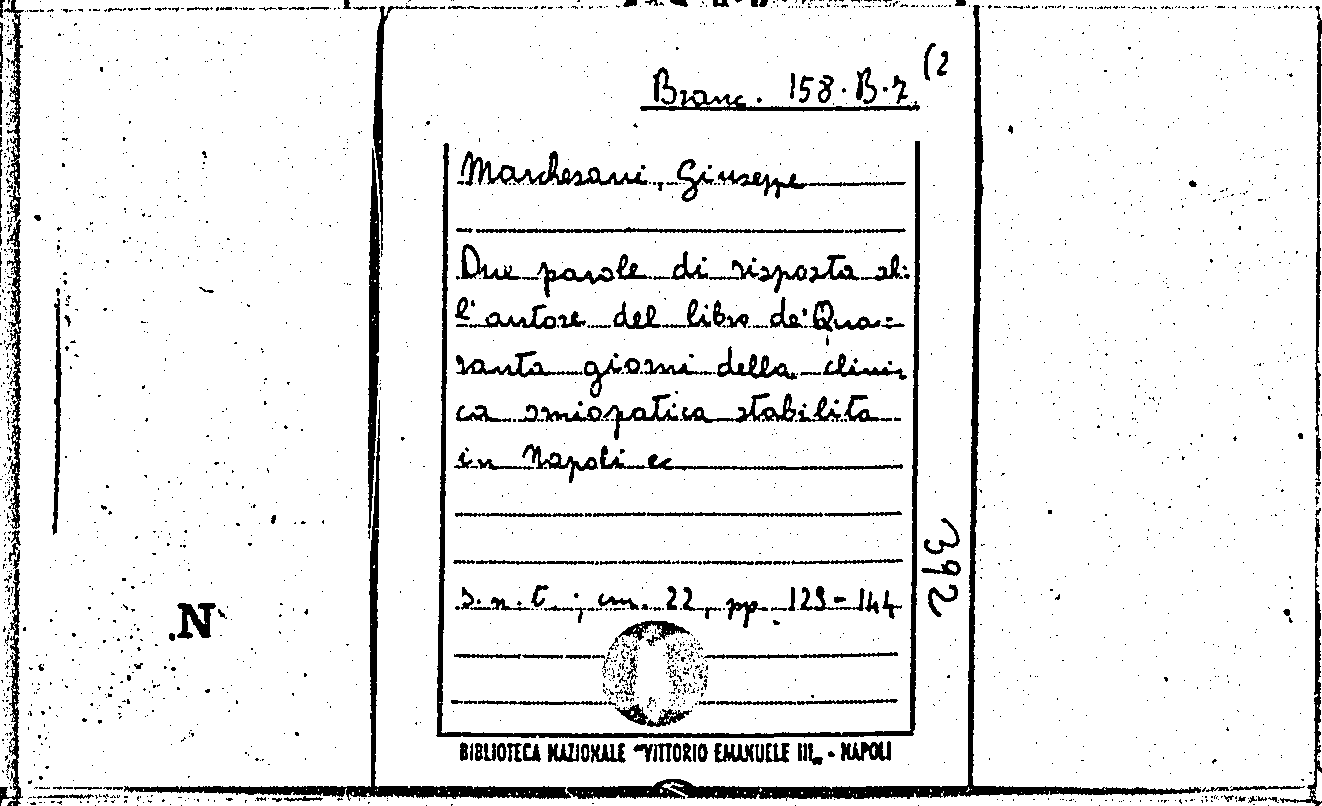 Branc. 158.B.7 (2
Marchesani, Giuseppe
Due parole di risposta al=
l'autore del libro de' Qua=
ranta giorni della clini=
ca omiopatica stabilita
in Napoli ec
s.n.t. ; cm. 22, pp. 129-144
392
N
BIBLIOTECA NAZIONALE "VITTORIO EMANUELE III„ - NAPOLI